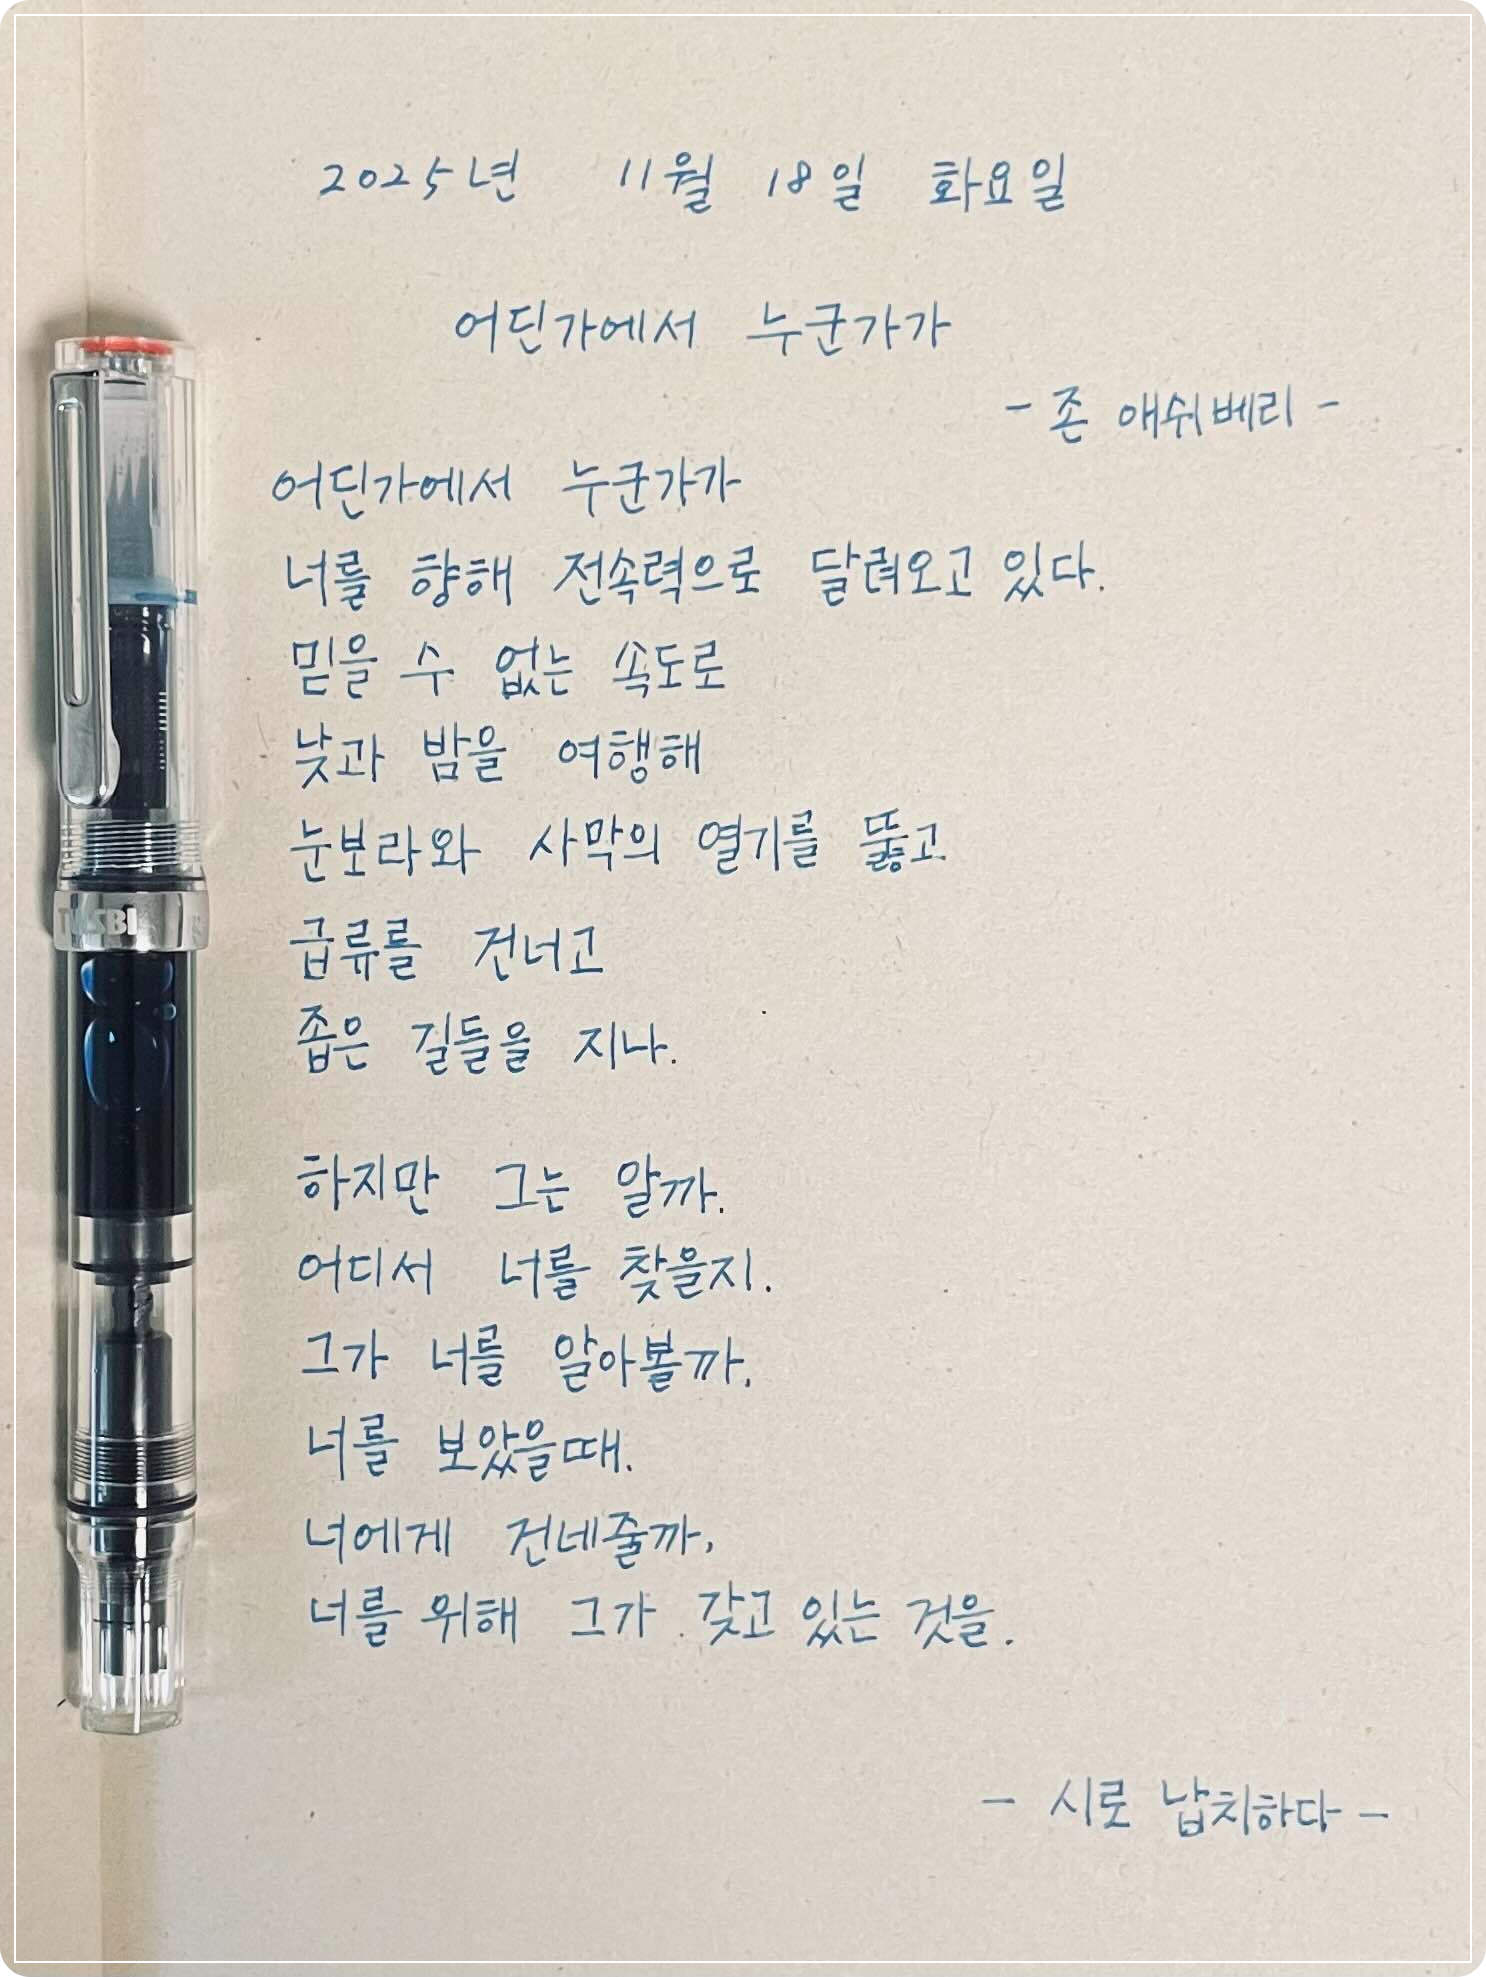 2025년 11월 18일 화요일
어딘가에서 누군가가
- 존 애쉬베리 -
어딘가에서 누군가가
너를 향해 전속력으로 달려오고 있다.
믿을 수 없는 속도로
낮과 밤을 여행해
눈보라와 사막의 열기를 뚫고
급류를 건너고
좁은 길들을 지나.
하지만 그는 알까.
어디서 너를 찾을지.
그가 너를 알아볼까,
너를 보았을때.
너에게 건네줄까,
너를 위해 그가 갖고 있는 것을.
- 시로 납치하다 -
TWSBI